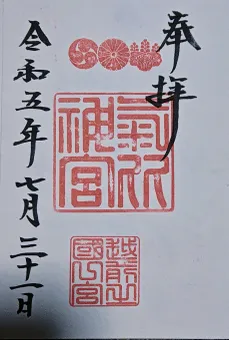 奉拝
氣比
神宮
越前
令和五年七月三十一日